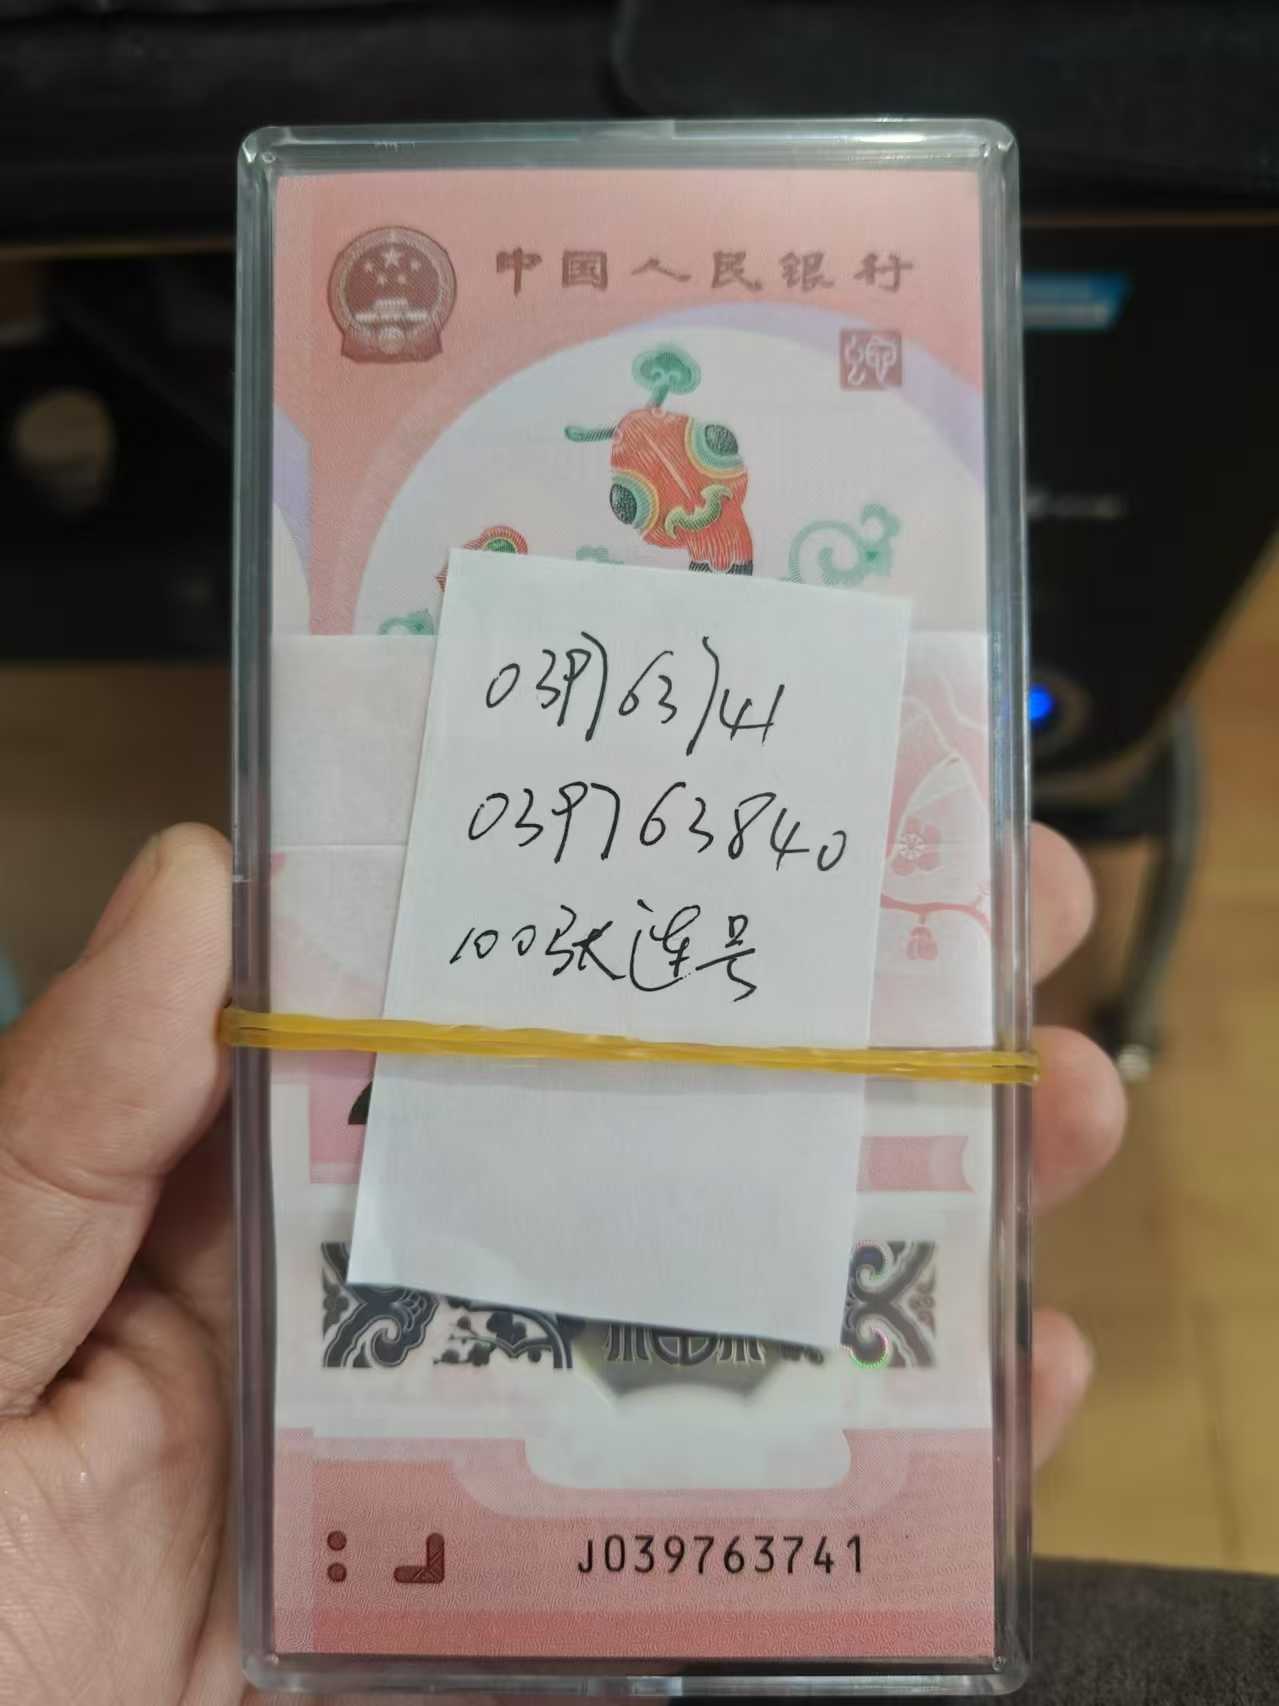 中国人民银行
039763741
039763840
100张连号
J039763741